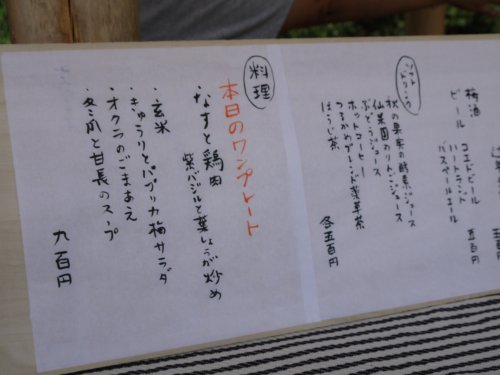 梅酒
ビール
コエドビール
ハートランド 五百円
バスペールエール
ソフトドリンク
秋の果実の酵素ジュース
仙菜園のりんごジュース
ぶどうジュース
ホットコーヒー
つるかめブレンド薬草茶
ほうじ茶
各五百円
料理
本日のワンプレート
・なすと鶏肉
紫バジルと葉しょうが炒め
・玄米
・きゅうりとパプリカ梅サラダ
・オクラのごまあえ
・冬瓜と甘長のスープ
九百円